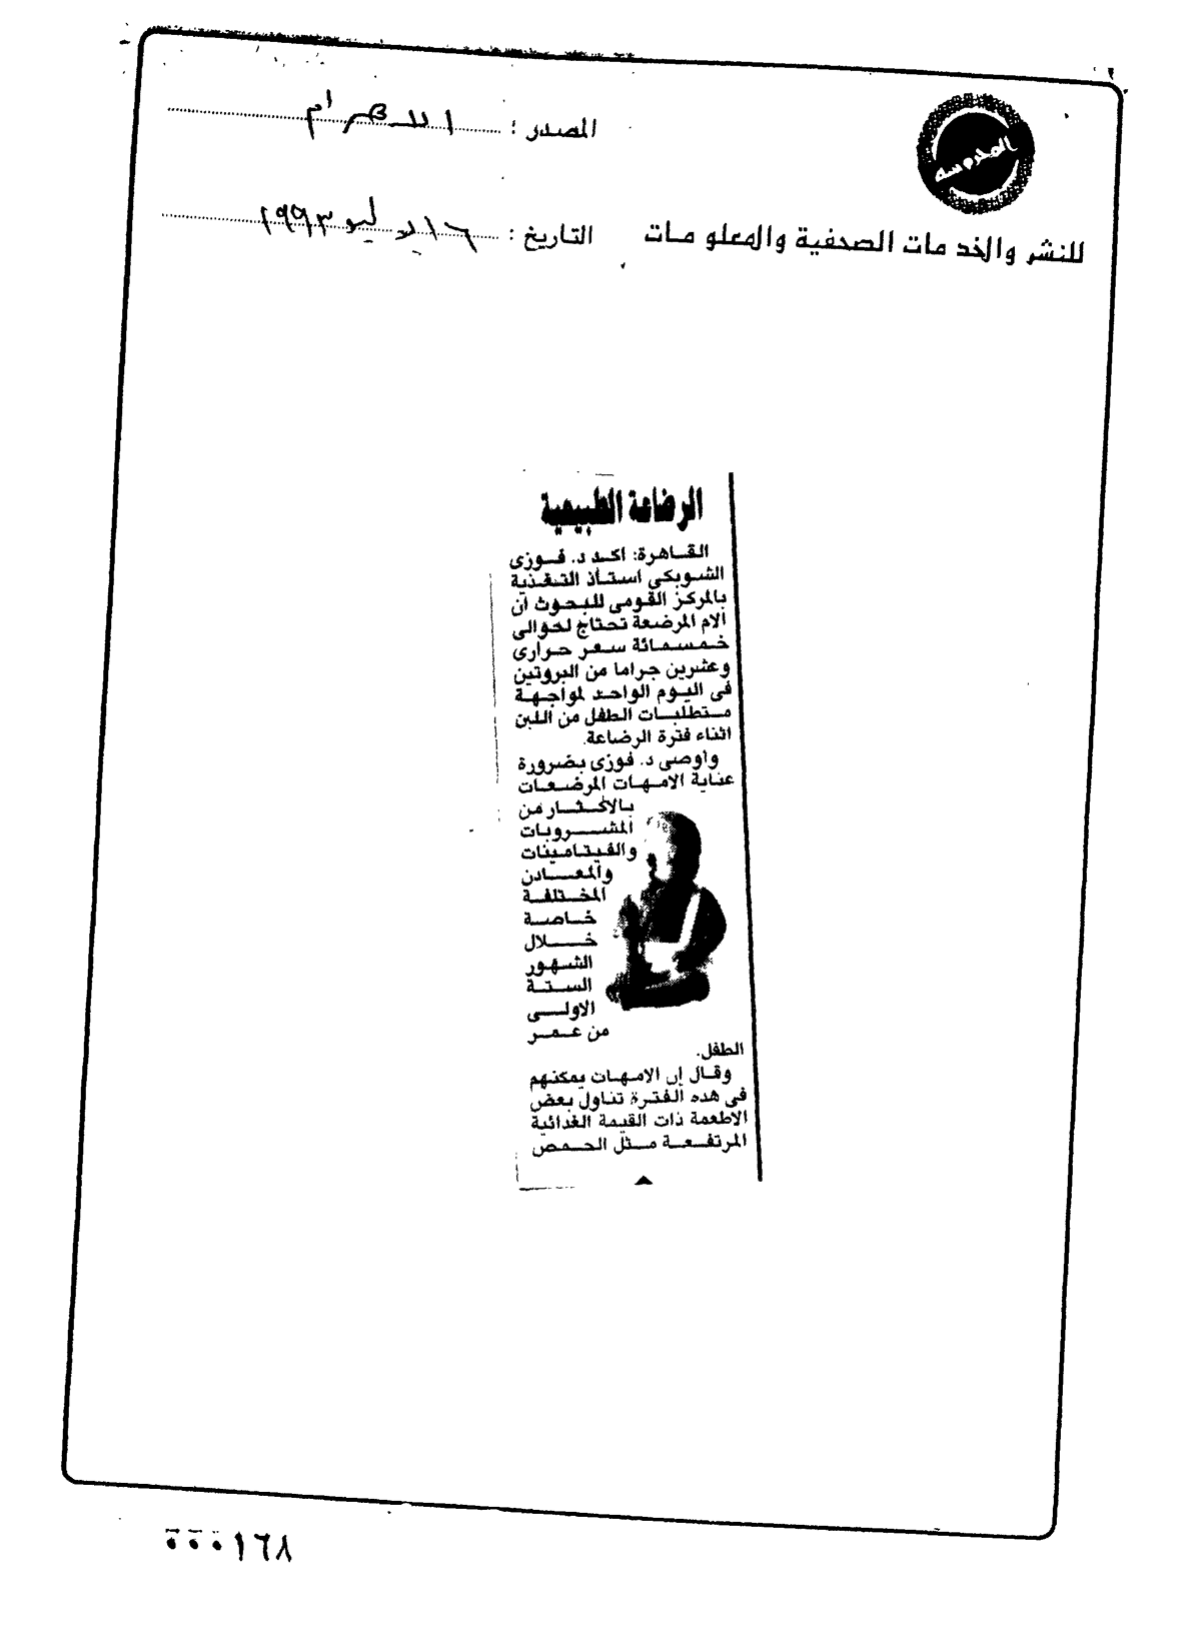 المحروسة
المصدر : الاهرام
للنشر والخدمات الصحفية والمعلومات
التاريخ : ١٦ يوليو ١٩٩٣
الرضاعة الطبيعية
القاهرة: اكد د. فوزى
الشوبكى استاذ التغذية
بالمركز القومى للبحوث ان
الام المرضعة تحتاج لحوالى
خمسمائة سعر حرارى
وعشرين جراما من البروتين
فى اليوم الواحد لمواجهة
متطلبات الطفل من اللبن
اثناء فترة الرضاعة.
واوصى د. فوزى بضرورة
عناية الامهات المرضعات
بالاكثار من
المشروبات
والفيتامينات
والمعادن
المختلفة
خاصة
خلال
الشهور
الستة
الاولى
من عمر
الطفل.
وقال إن الامهات يمكنهم
فى هذه الفترة تناول بعض
الاطعمة ذات القيمة الغذائية
المرتفعة مثل الحمص
٠٠٠١٦٨